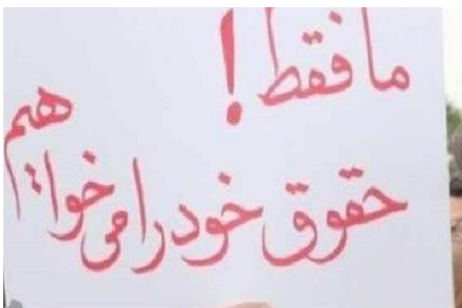 ما فقط!
حقوق خود را می خواهیم